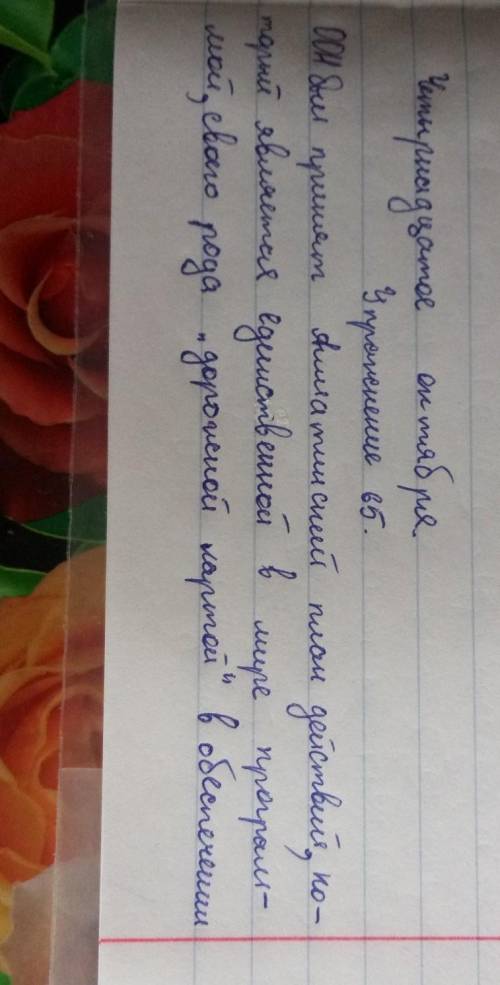 Четырнадцатое октября.
Упражнение 65.
ООН был принят Алматинский план действий, ко-
торый является единственной в мире програм-
мой, своего рода „дорожной картой" в обеспечении